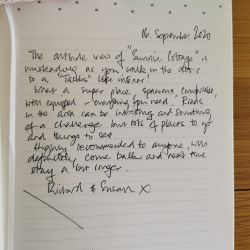 16 September 2020
The outside view of "Sunrise Cottage" is
misleading as you walk in the door
to a "Tardis" like interior!
What a super place, spacious, comfortable,
well equipped - everything you need. Roads
in the area can be interesting and something
of a challenge but lots of places to go
and things to see.
Highly recommended to anyone, will
definitely come back and next time
stay a bit longer.
Richard & Susan X